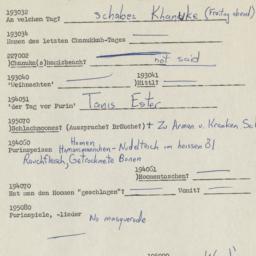 193032
An welchen Tag? schabes Khanuke (Freitag abend)
193034
Namen des letzten Chanukkah-Tages
227002
Chanuke(s)bäuischench? not said
193040 193041
'Weihnachten' )Nittl?
194031
'der Tag vor Purim' Tanis Ester
195070
Schlachmones? (Aussprache? Bräuche?) + Zu Armen u. Kranken
194050 Homen
Purimspeisen Humansmannchen - Nudelteich im heissen Öl
Rauchfleisch, Getrocknete Bonen
194061
)Hoomentaschen?
194070
Hat man den Homen "geschlagen"? Womit?
195080
Purimspiele, -lieder No masquerade